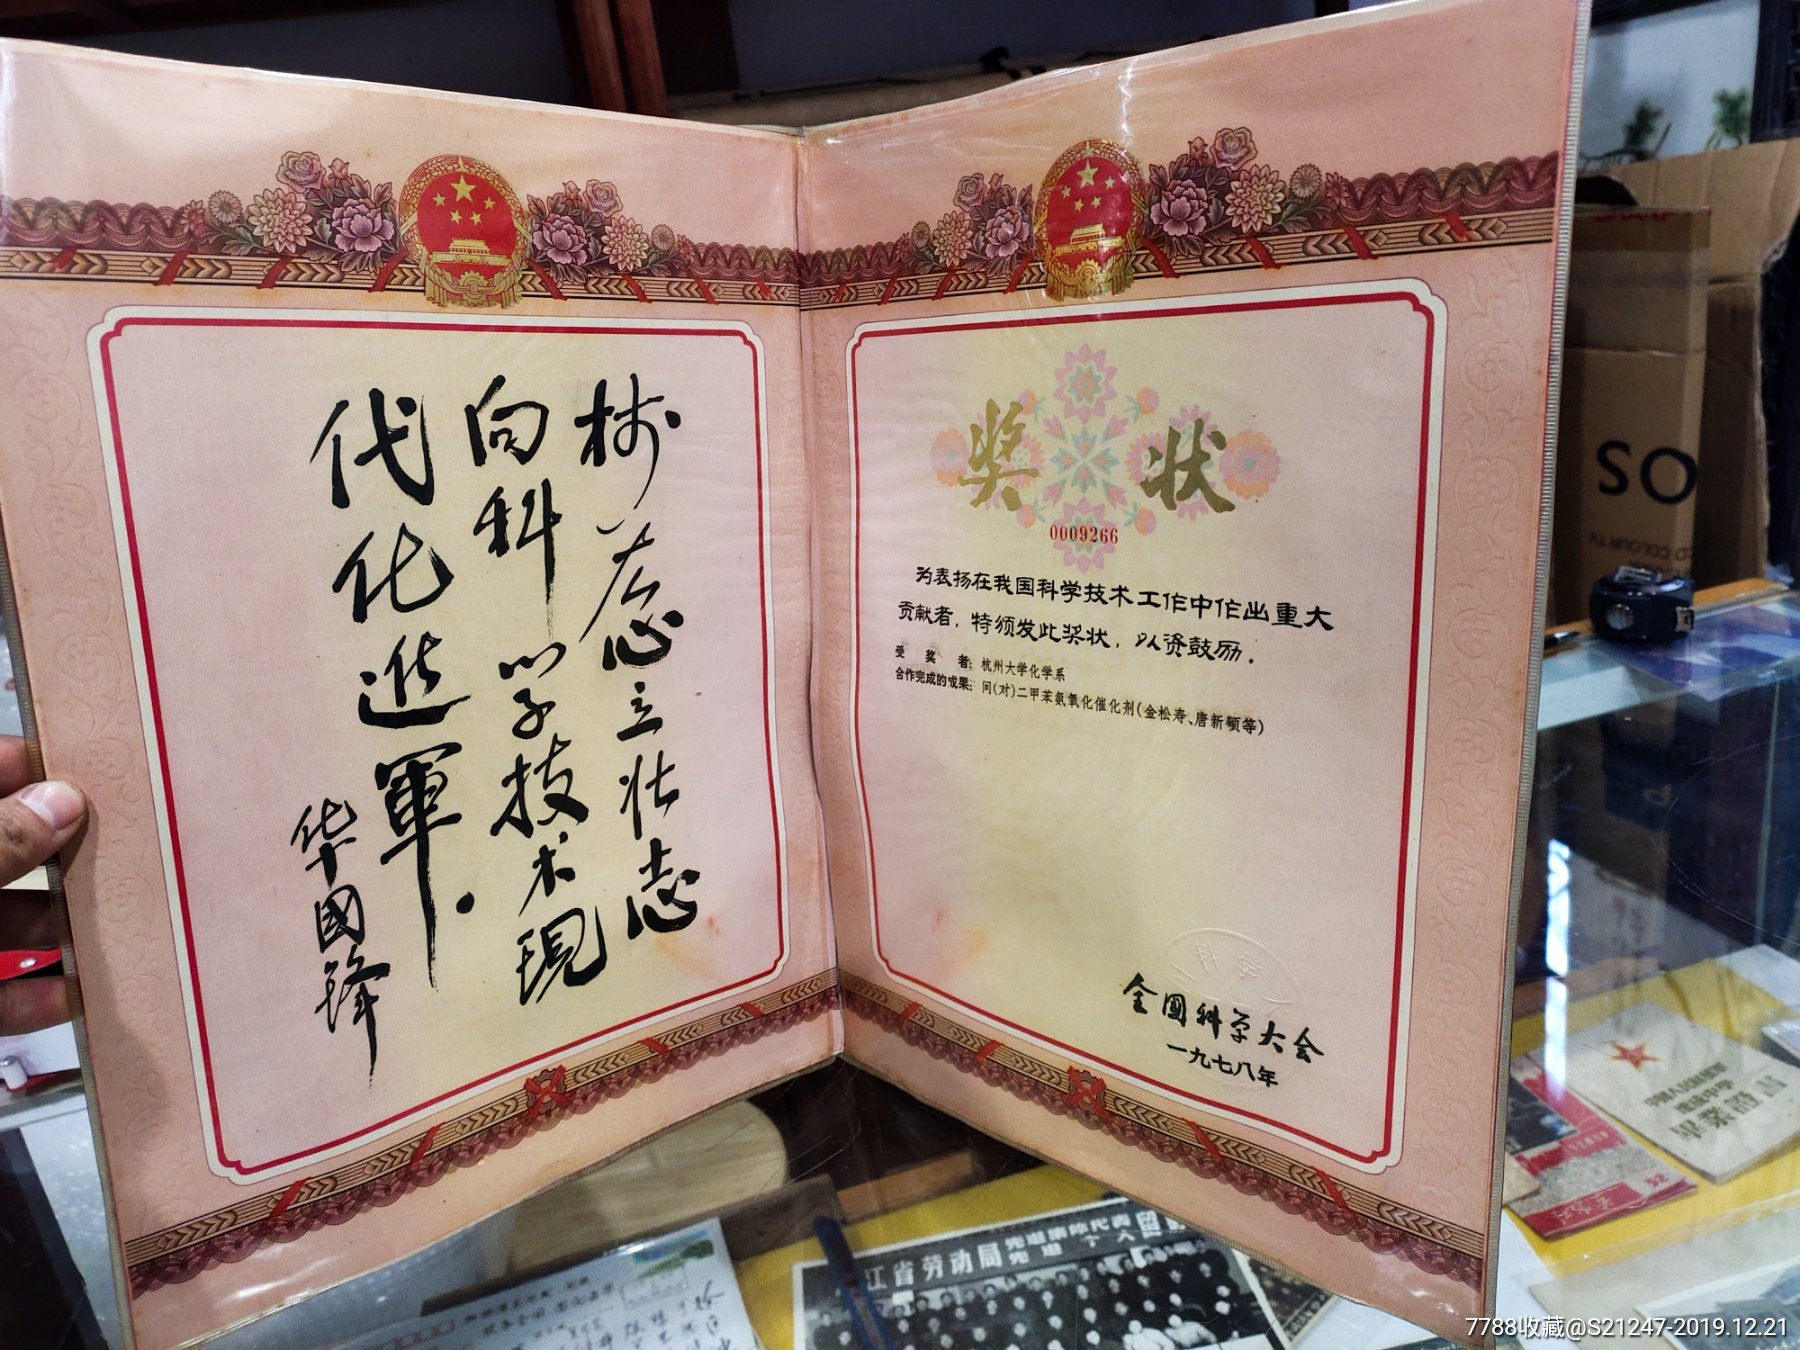 树雄心立壮志
向科学技术现
代化进軍.
华國锋
奖状
0009266
为表扬在我国科学技术工作中作出重大
贡献者，特颁发此奖状，以资鼓励．
受奖者：杭州大学化学系
合作完成的成果：间(对)二甲苯氨氧化催化剂(金松寿、唐新硕等)
全国科学大会
一九七八年
SO
CD COLOUR TV
江省劳动局先进集体代表
先进个人
7788收藏@S21247-2019.12.21